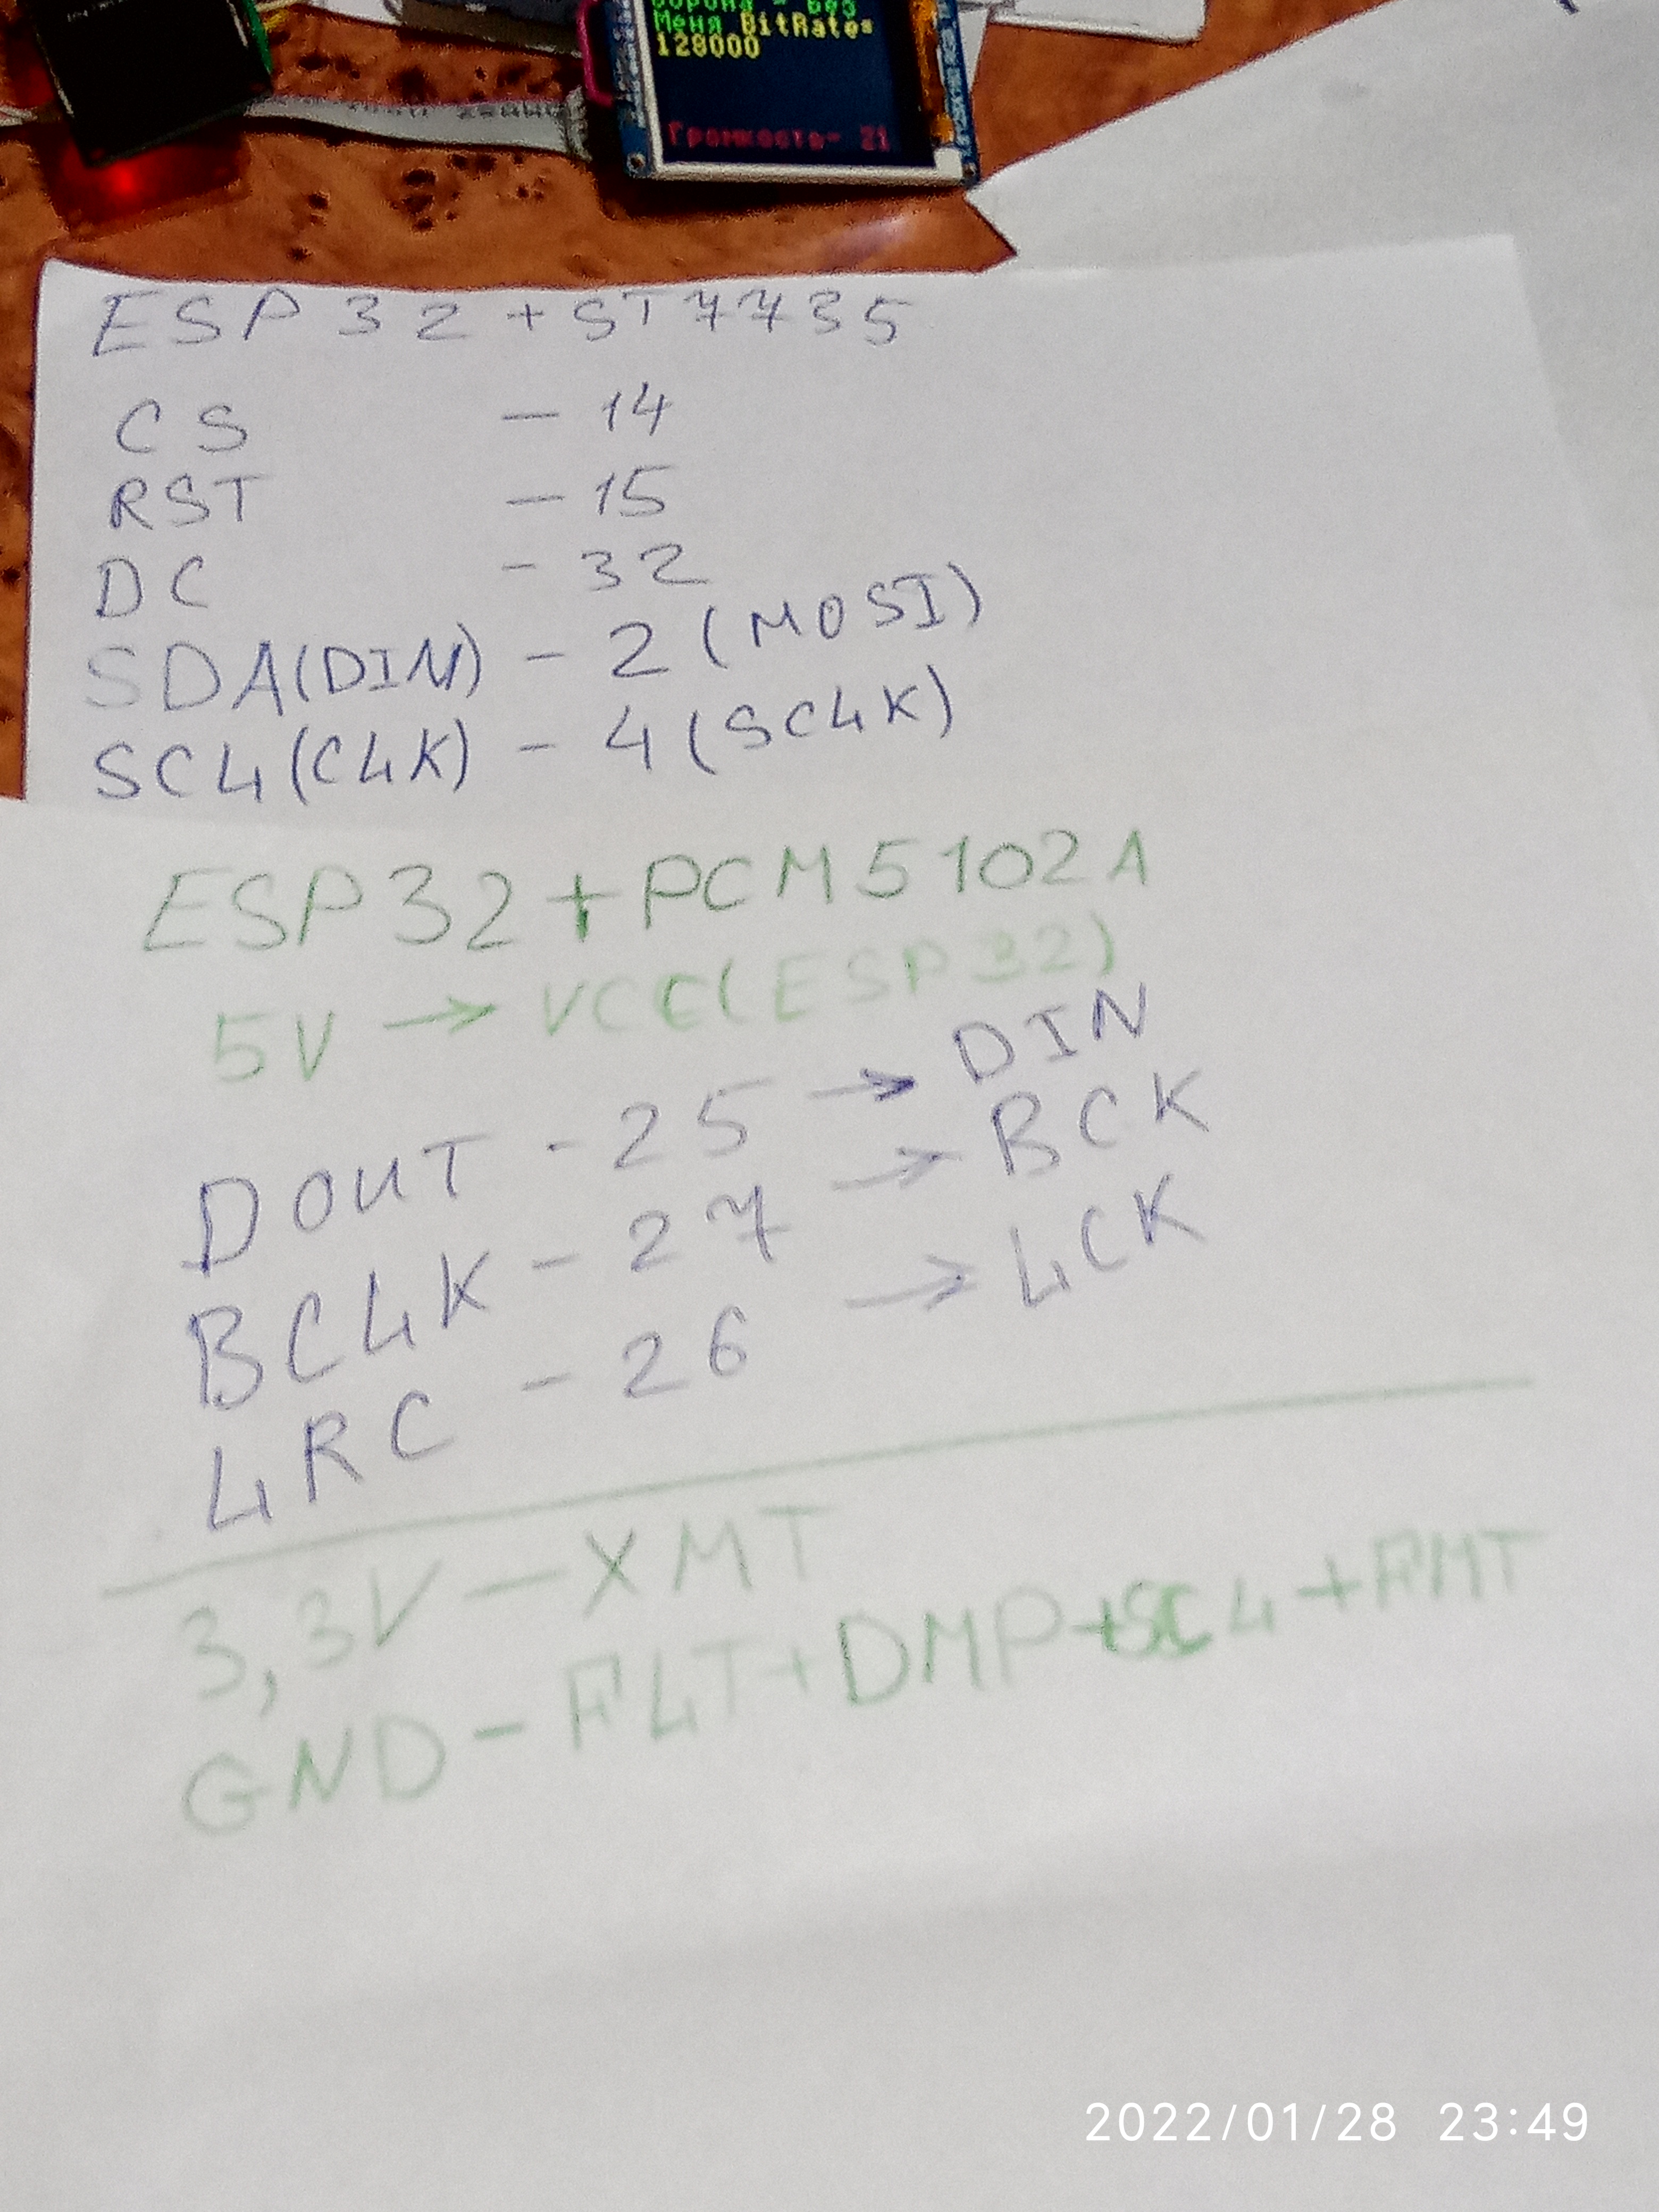 Меня BitRate=
128000
Громкость- 21
ESP32+ST7735
CS - 14
RST - 15
DC - 32
SDA(DIN) - 2(MOSI)
SCL(CLK) - 4(SCLK)
ESP32+PCM5102A
5V → VCC(ESP32)
DOUT - 25 → DIN
BCLK - 27 → BCK
LRC - 26 → LCK
3,3V - XMT
GND - FLT+DMP+SCL+FMT
2022/01/28 23:49